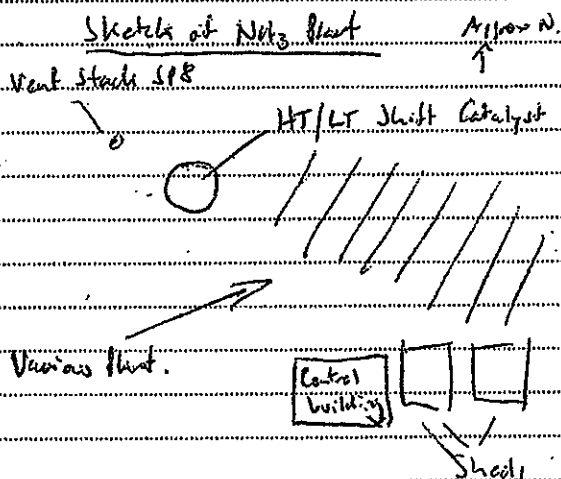 Sketch of NH3 Plant
Approx N.
Vent Stack SP8
HT/LT Shift Catalyst
Various Plant.
Control
building
Sheds